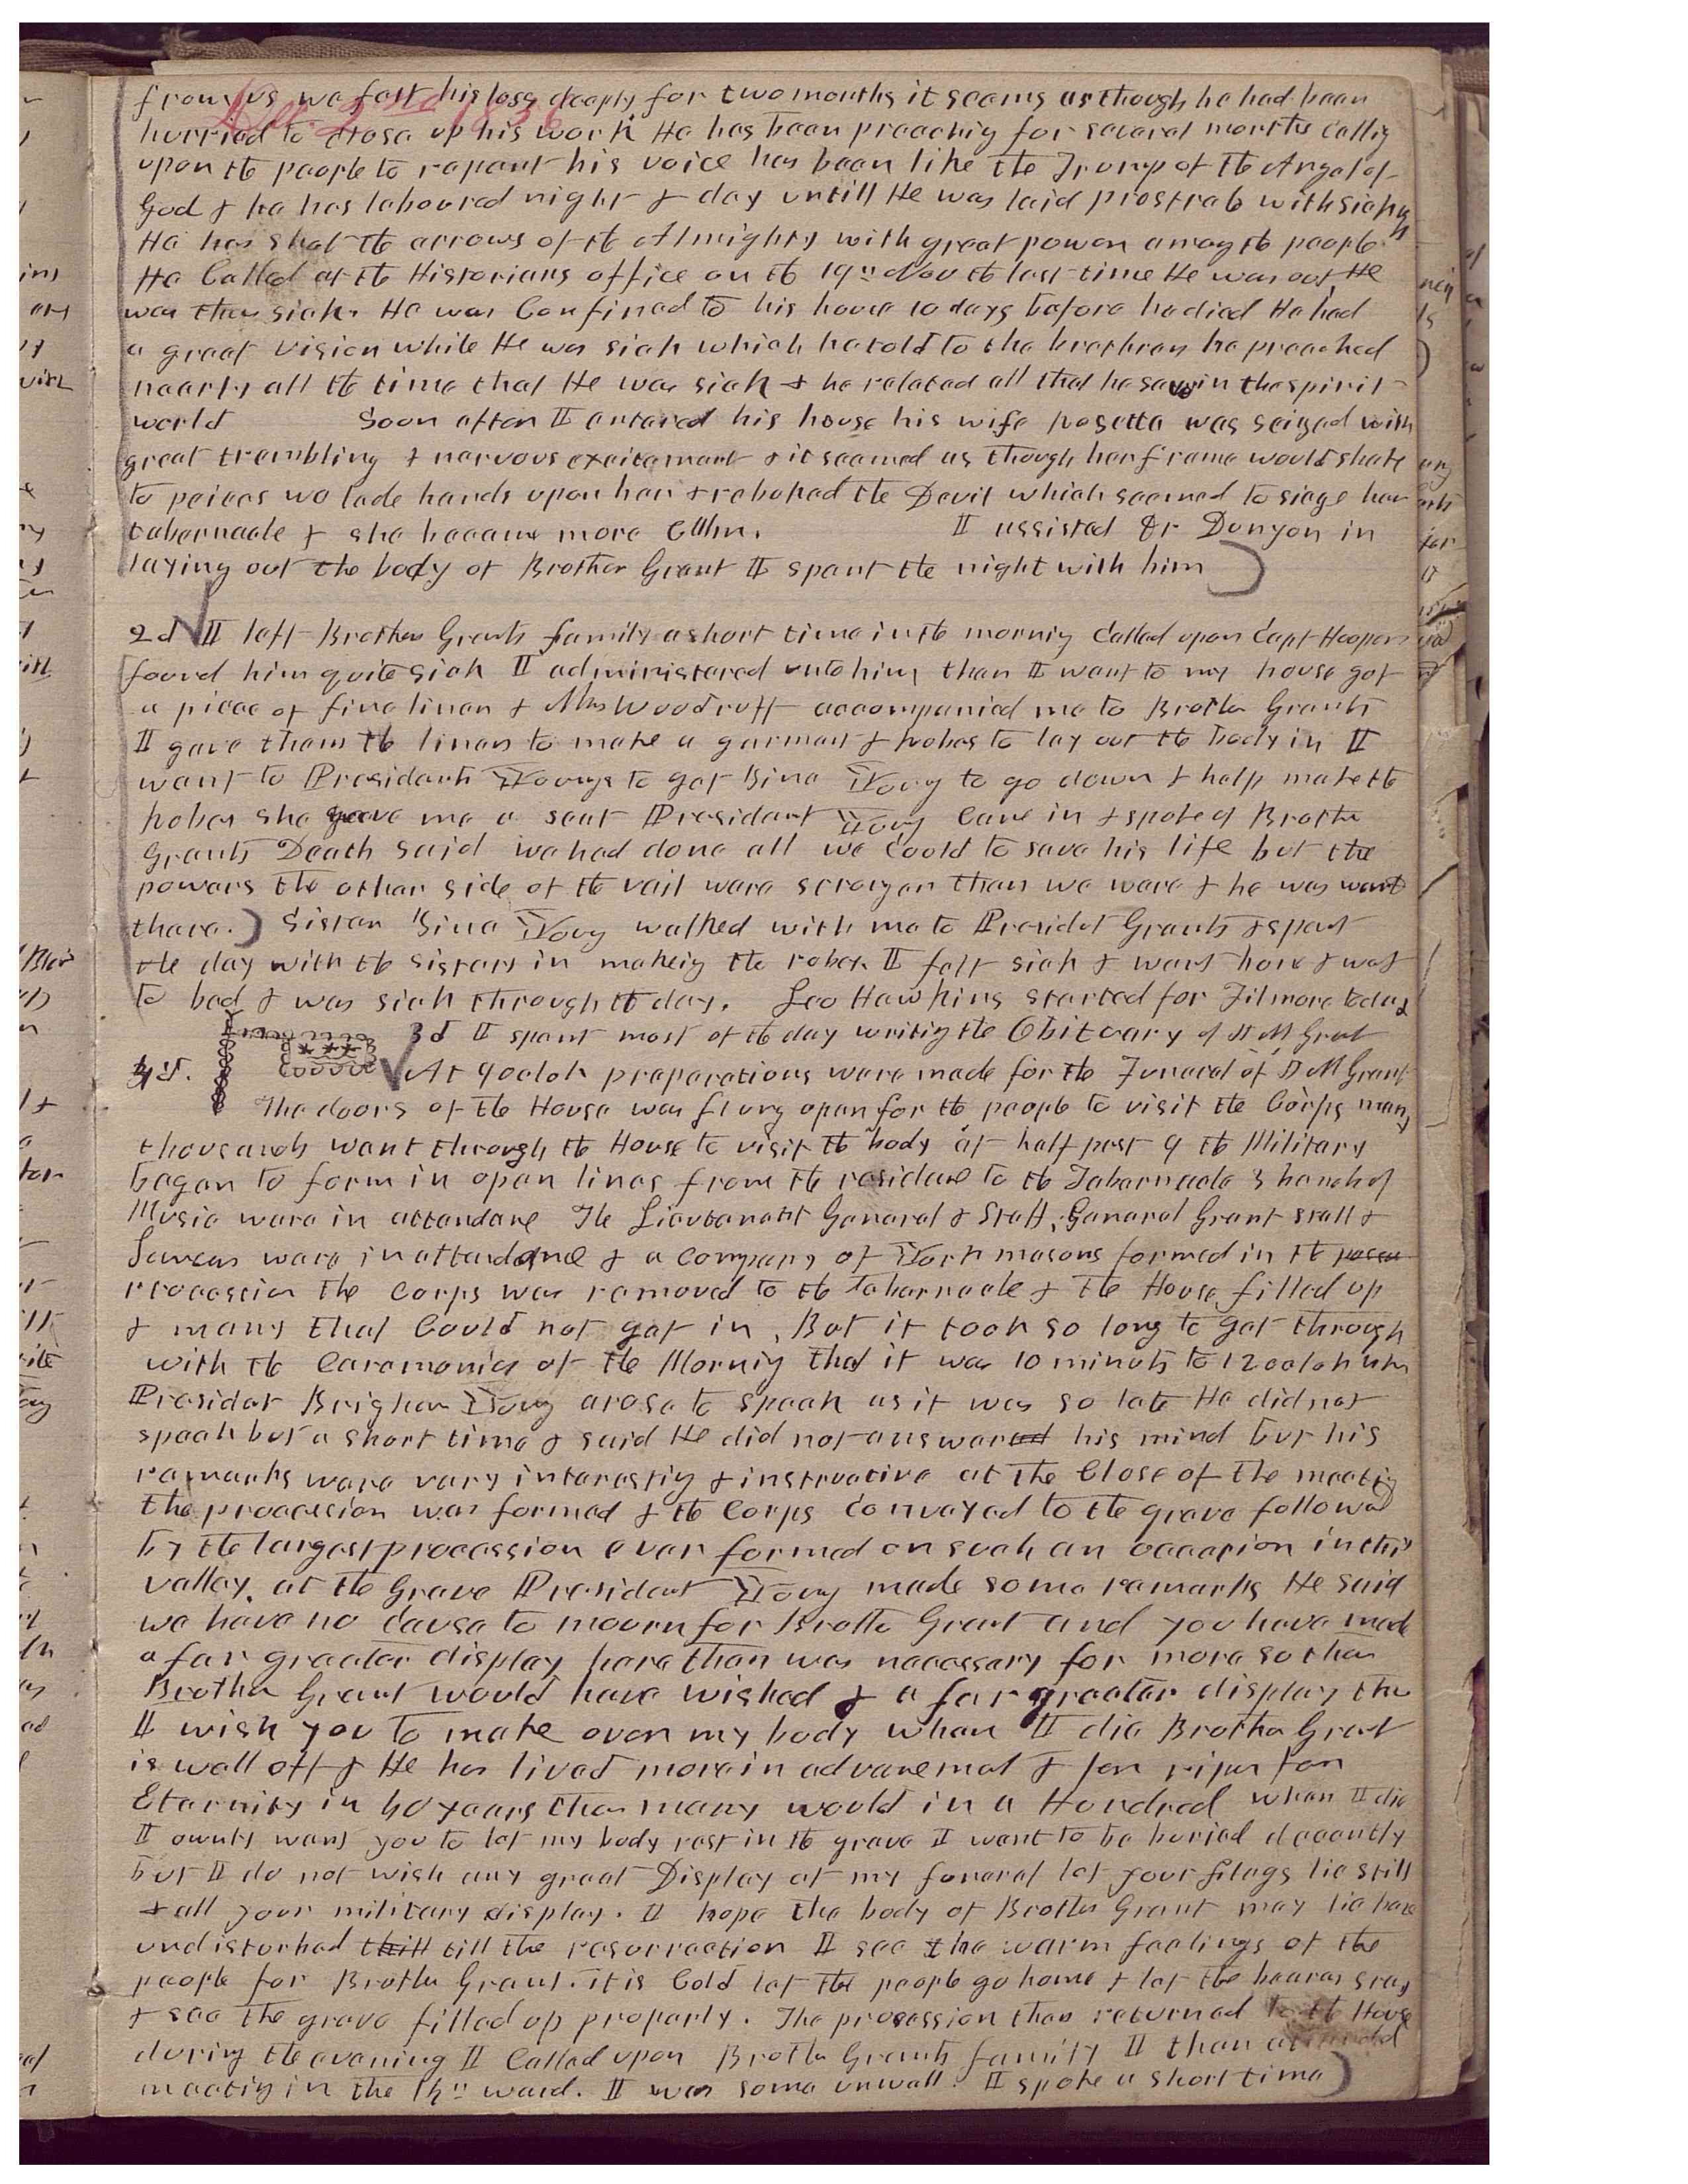 from us we felt his loss deeply for two months it seems as though he had been
Dec. 2nd 1856
hurried to close up his work He has been preachig for several months Callig
upon the people to repent his voice has been like the Trump of the Angel of
God & he has laboured night & day untill He was laid prostrate with sickns
He has shot the arrows of the Almighty with great power amog the people.
He Called at the Historians office on the 19" Nov the last time He was out, He
was then sick. He was Confined to his house 10 days before he died He had
a great vision while He was sick which he told to the brethren he preached
nearly all the time that He was sick & he related all that he saw in the spirit
world Soon after I entered his house his wife Rosetta was seized with
great trembling & nervous excitement & it seemed as though her frame would shake
to peices we lade hands upon her & rebuked the Devil which seemed to siege her
tabernacle & she became more Calm. I assisted Dr Dunyon in
laying out the body of Brother Grant I spent the night with him
2d I left Brother Grants family a short time in the mornig Called upon Capt Hooper
found him quite sick I administered unto him then I went to my house got
a piece of fine linen & Mrs Woodruff accompanied me to Brother Grants
I gave them the linen to make a garment & Robes to lay out the body in I
went to Presidents Youngs to get Zina Young to go down & help make the
Robes she gave me a seat President Young Came in & spoke of Brother
Grants Death said we had done all we Could to save his life but the
powers the other side of the vail were stronger than we were & he was want
there. Sister Zina Young walked with me to Presidet Grants & spent
the day with the sisters in makeig the robes. I felt sick & went home & went
to bed & was sick through the day. Leo Hawkins started for Filmore today
3d I spent most of the day writig the Obituary of J M Grant
4th. At 9 oclok preparations were made for the Funeral of J M Grant
The doors of the House was flung open for the people to visit the Corps many
thousands went through the House to visit the body at half past 9 the Military
began to form in open lines from the residence to the Tabernacle 3 bands of
Music were in attendance The Lieutenant General & Staff, General Grant staff &
Lancers were in attendance & a company of York masons formed in the
procession the Corps was removed to the tabernacle & the House filled up
& many that Could not get in, But it took so long to get through
with the Ceremonies of the Mornig that it was 10 minuts to 12 oclok when
Presidet Brigham Young arose to speak as it was so late He did not
speak but a short time & said He did not answered his mind but his
remarks were very interestig & instructive at the Close of the meetig
the procession was formed & the Corps Conveyed to the grave followed
by the largest procession ever formed on such an occasion in this
valley. at the Grave President Young made some remarks He said
we have no Cause to mourn for Brother Grant and you have made
a far greater display here than was necessary for more so than
Brother Grant would have wished & a far greater display than
I wish you to make over my body when I die Brother Grant
is well off & He has lived more in advancement & far riper for
Eternity in 40 years than many would in a Hundred when I die
I ownly want you to let my body rest in the grave I want to be buried decently
but I do not wish any great Display at my funeral let your flags lie still
& all your military display. I hope the body of Brother Grant may lie here
undisturbed till till the resurrection I see the warm feelings of the
people for Brother Grant. it is Cold let the people go home & let the bearers stay
& see the grave filled up properly. The procession then returned to the House
during the evening I Called upon Brother Grants family I then attended
meetig in the 14" ward. I was some unwell. I spoke a short time